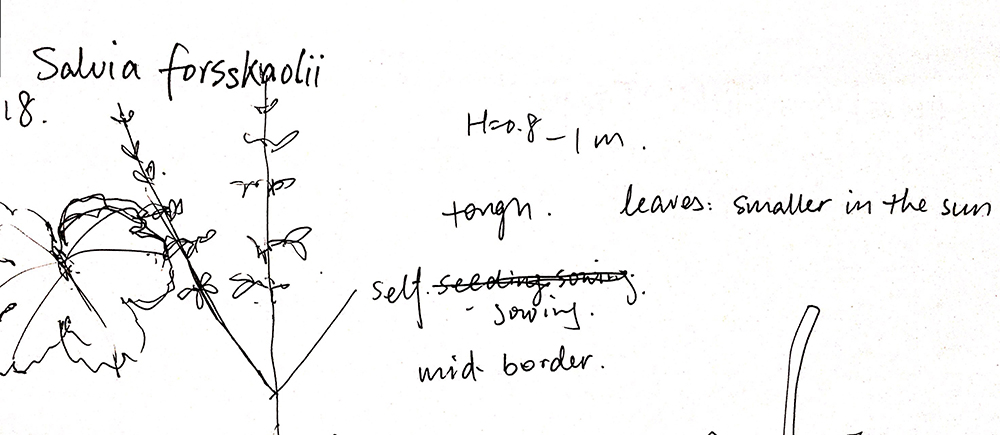 Salvia forsskaolii
18.
H=0.8-1m.
tough.
leaves: smaller in the sun
self seeding sowing.
- sowing.
mid-border.